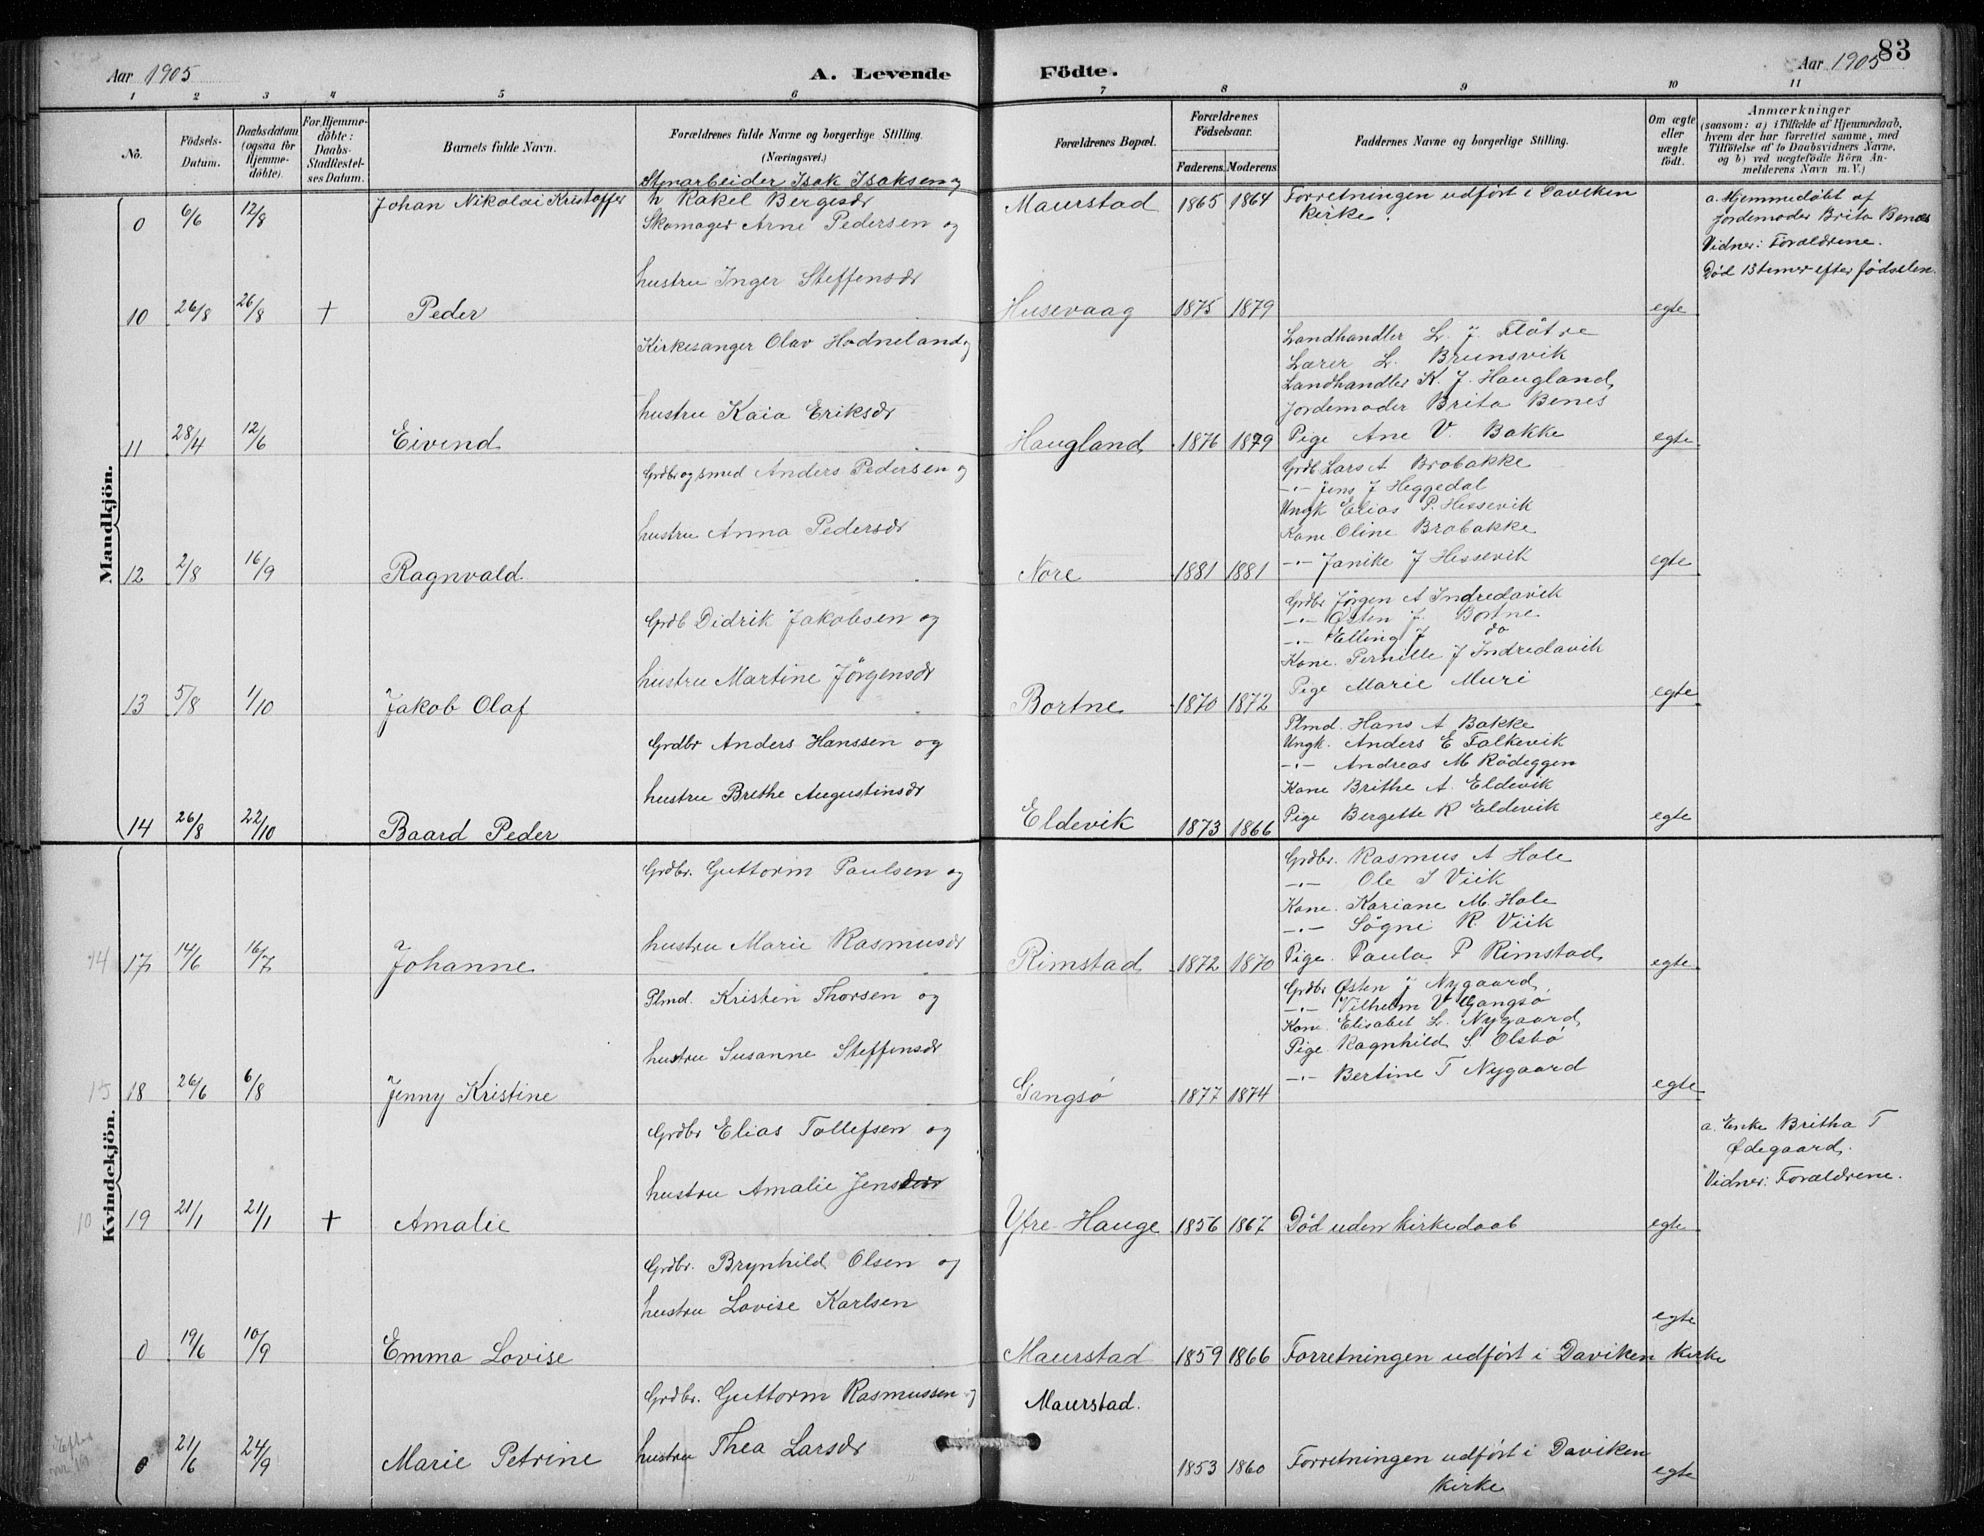 Aar 1905
A. Levende
Födte.
Aar 1905
83
1 2 3 4 5 6 7 8 9 10 11
No.
Födsels-Datum.
Daabsdatum (ogsaa for Hjemme-döbte).
For Hjemme-döbte: Daabs-Stadfæstelses Datum.
Barnets fulde Navn.
Forældrenes fulde Navne og borgerlige Stilling. (Næringsvei.)
Forældrenes Bopæl.
Forældrenes Födselsaar.
Faderens. Moderens
Faddernes Navne og borgerlige Stilling.
Om ægte eller uægte födt.
Anmærkninger
(saasom: a) i Tilfælde af Hjemmedaab, hvem der har forrettet samme, med Tilföielse af to Daabsvidners Navne, og b) ved uægtefödte Börn Anmelderens Navn m. V.)
Mandkjön.
Isak Isaksen og
0 6/6 12/8 Johan Nikolai Kristoffer h Rakel Bergesdr Maurstad 1865 1864 Forretningen udført i Daviken
Kirke.
a. Hjemmedøbt af
Jordemoder Brita Benes
Vidner: Forældrene.
Død 13 timer efter fødselen.
Skomager Arne Pedersen og
hustru Inger Steffensdr
10 26/8 26/8 + Peder Husevaag 1875 1879 egte
Kirkesanger Olav Hodneland og
hustru Kaia Eriksdr
Landhandler L. J. Fløtre
Lærer L. Brunsvik
Landhandler K. J. Haugland
Jordemoder Brita Benes
11 28/4 12/6 Eivind Haugland 1876 1879 Pige Ane V. Bakke egte
Grdbr og smed Anders Pedersen og
hustru Anna Pedersdr
Grdb Lars A Brobakke
-"- Jens J Heggedal
Ungk Elias P. Hessevik
Kone Oline Brobakke
12 2/8 16/9 Ragnvald Nore 1881 1881 -"- Janike J Hessevik egte
Grdb Didrik Jakobsen og
hustru Martine Jørgensdr
Grdbr Jørgen A Indredavik
-"- Østen J. Bortne
-"- Elling J do
Kone. Pernille J Indredavik
13 5/8 1/10 Jakob Olaf Bortne 1870 1872 Pige Marie Muri egte
Grdbr Anders Hanssen og
hustru Brethe Augustinsdr
Plmd. Hans A Bakke
Ungk. Anders E Falkevik
-"- Andreas M Rødeggen
Kone Brithe A. Eldevik
14 26/8 22/10 Baard Peder Eldevik 1873 1866 Pige Bergette R Eldevik egte
Kvindekjön.
Grdbr. Guttorm Paulsen og
hustru Marie Rasmusdr
Grdbr. Rasmus A Hole
-"- Ole J Viik
Kone. Kariane M. Hole
-"- Søgni R. Viik
14 17 14/6 16/7 Johanne Rimstad 1872 1870 Pige. Paula P Rimstad egte
Plmd. Kristen Thorsen og
hustru Susanne Steffensdr
Grdbr Østen J Nygaard
-"- Vilhelm V Gangsø
Kone. Elisabet L. Nygaard
Pige. Ragnhild S. Olsbø
15 18 26/6 6/8 Jenny Kristine Gangsø 1877 1874 -"- Bertine T Nygaard egte
Grdbr Elias Tollefsen og
hustru Amalie Jensdr
a. Enke Britha T
Ødegaard.
Vidner: Forældrene.
10 19 21/1 21/1 + Amalie Ytre-Hauge 1856 1867 Død uden kirkedaab egte
Grdbr. Brynhild Olsen og
hustru Lovise Karlsen
0 19/6 10/9 Emma Lovise Maurstad 1859 1866 Forretningen udført i Daviken Kirke egte
Grdbr. Guttorm Rasmussen og
hustru Thea Larsdr
Maurstad.
Efter
nr 19
0 21/6 24/9 Marie Petrine 1853 1860 Forretningen udført i Daviken
Kirke egte